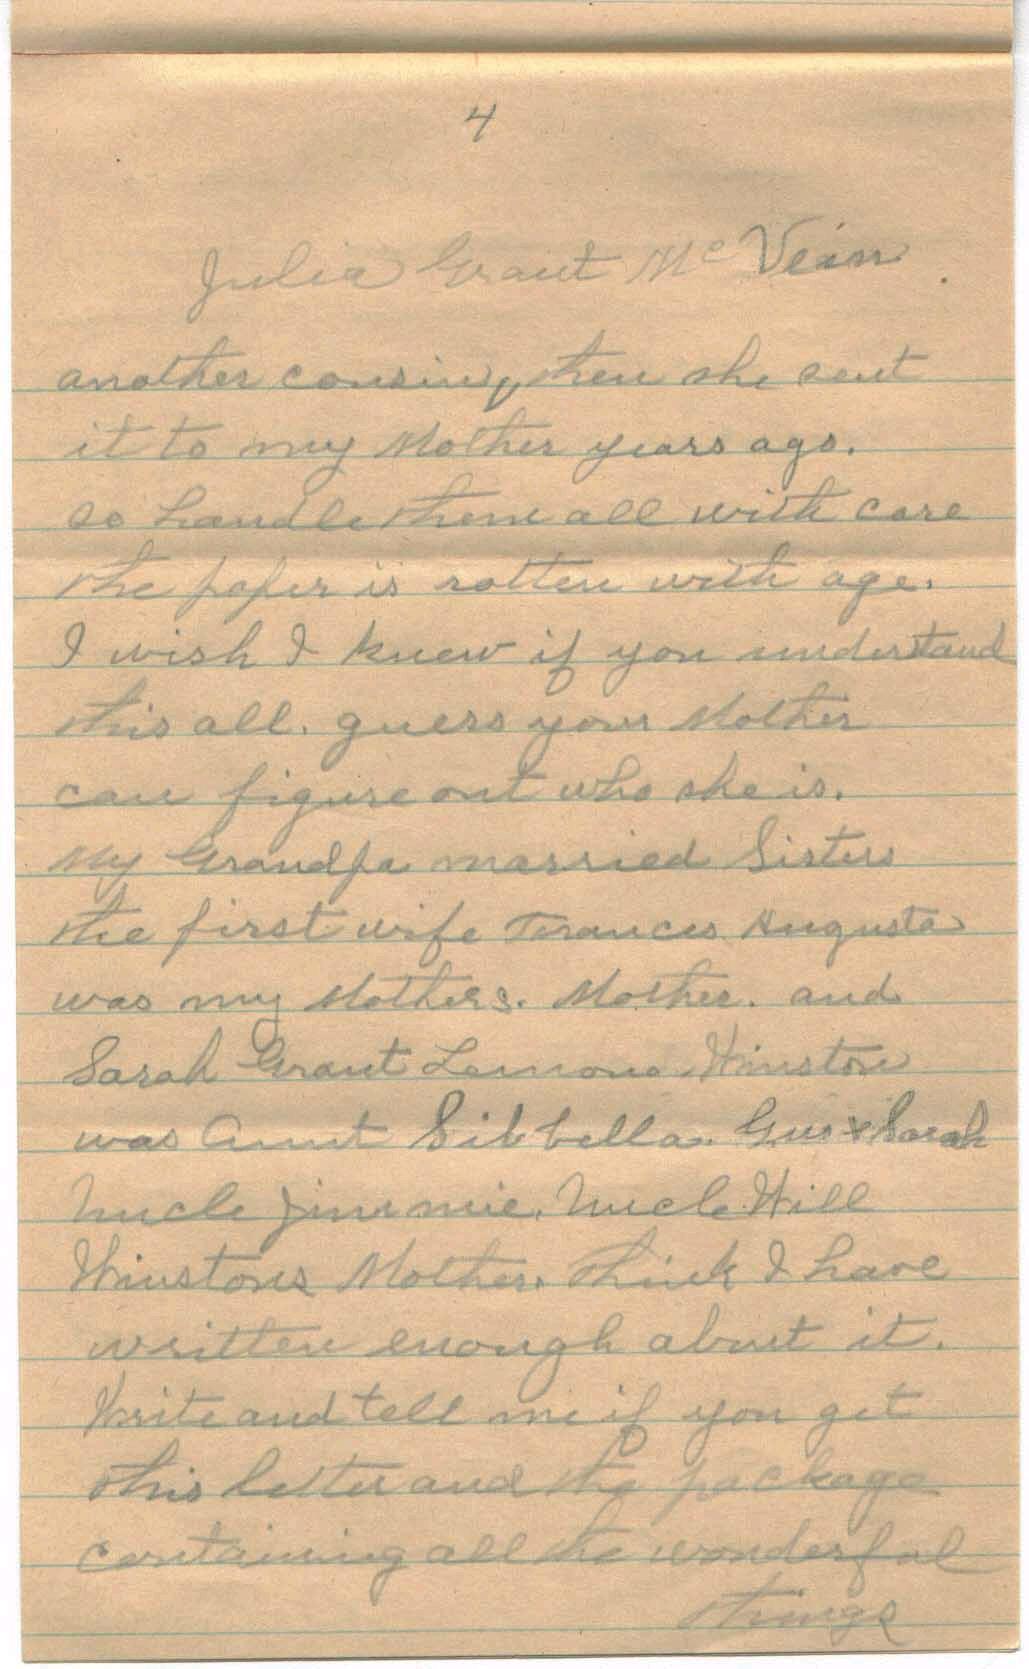 4
Julia Grant Mc Vein
another cousin, then she sent
it to my Mother years ago.
so handle them all with care
the paper is rotten with age.
I wish I knew if you understand
this all. guess your Mother
can figure out who she is.
My Grandpa married Sisters
the first wife Frances Augusta
was my Mothers. Mother. and
Sarah Grant Lemons Winston
was Aunt Sibbella. Gus & Sarah
Uncle Jimmie. Uncle Will
Winstons Mother. Think I have
written enough about it.
Write and tell me if you get
this letter and the package
containing all the wonderful
things